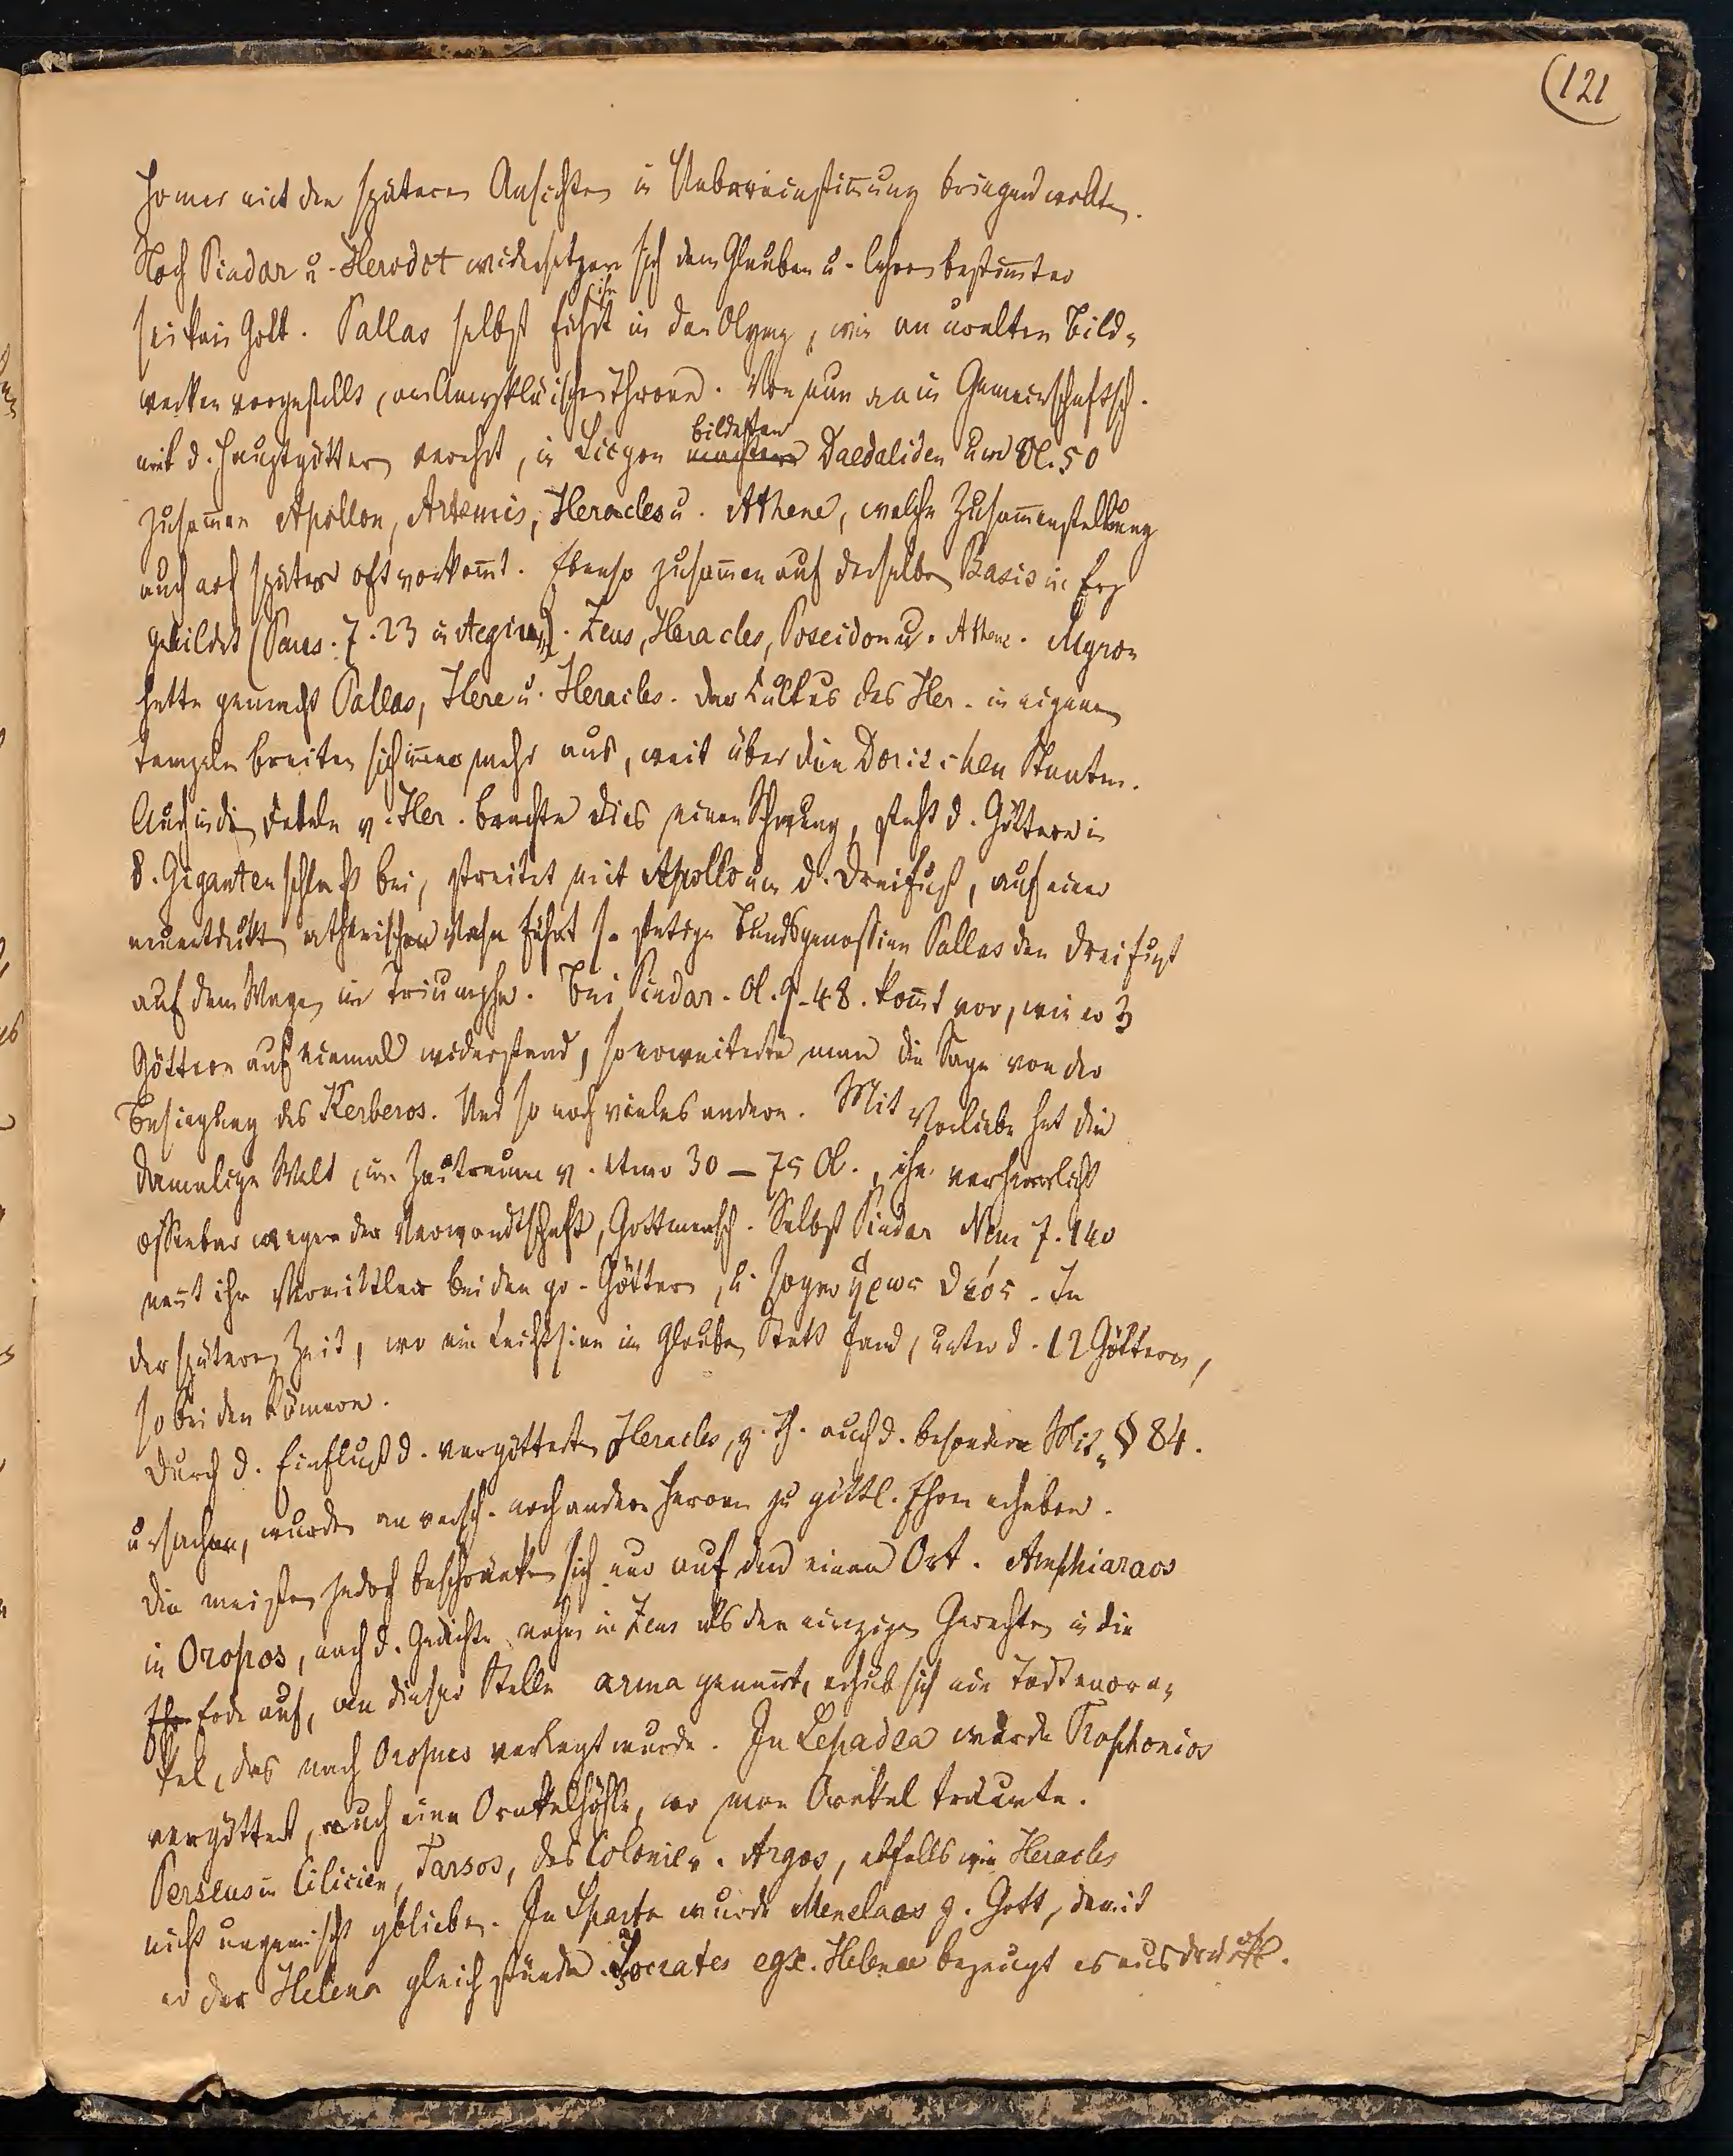 (121
Homer mit den späteren Ansichten in Uebereinstimmung bringen wollten.
Noch Pindar u. Herodot widersetzen sich dem Glauben u. lehren bestimmter
sei kein Gott. Pallas selbst führt ihn in den Olymp, wie an uralten Bild-
werken vorgestellt, am Amykläischen Throne. Von nun an in Gemeinschaft
mit d. Hauptgöttern verehrt, in Sicyon machten bildeten Daedaliden um Ol. 50
zusam̄en Apollon, Artemis, Heracles u. Athene, welche Zusam̄enstellung
auch noch später oft vorkom̄t. Ebenso zusam̄en auf derselben Basis in Erz
gebildet (Paus. 7. 23 in Aegium). Zeus, Heracles, Poseidon u. Athene. Myron
hatte gemacht Pallas, Here u. Heracles. Der Cultus des Her. in eigenen
Tempeln breitet sich im̄er mehr aus, weit über die Dorischen Staaten.
Auch in die Fabeln v. Her. brachte dies einen Schwung, steht d. Göttern in
d. Gigantenschlacht bei, streitet mit Apollo um d. Dreifuß, auf einer
neuentdeckten athenischen Vase führt s. stetige Bundsgenossin Pallas den Dreifuß
auf dem Wagen im Triumphe. Bei Pindar. Ol. 9. 48. kom̄t vor, wie er 3
Göttern auf einmal widerstand, so erweiterte man die Sage von der
Besiegung des Kerberos. Und so noch vieles andere. Mit Vorliebe hat die
damalige Welt, im Zeitraume v. etwa 30 – 75 Ol., ihn verherrlicht
offenbar wegen der Verwandtschaft, Gottmensch. Selbst Pindar Nem 7. 140
nen̄t ihn Vermittler bei den gr. Göttern, u. sogar ἥρως θεός. In
der späteren Zeit, wo ein Leichtsinn im Glauben Statt fand, unter d. 12 Göttern,
so bei den Römern.
Durch d. Einfluß d. vergötterten Heracles, z. Th. auch d. besondere Mit- § 84.
ursachen, wurden an versch. noch andere Heroen zu göttl. Ehren erhoben.
Die meisten jedoch beschränken sich nur auf den einen Ort. Amphiaraos
in Oropos, nach d. Gedichte nahm ihn Zeus als den einzigen Gerechten in die
Erde auf, an dieser Stelle arma genan̄t, erhub sich ein Todtenora-
kel, das nach Oropus verlegt wurde. In Lepadea wurde Trophonios
vergöttert, auch eine Orakelhöhle, wo man Orakel träumte.
Perseus in Cilicien, Tarsos, das Colonie v. Argos, ebfalls wie Heracles
nicht ungemischt geblieben. In Sparta wurde Menelaos z. Gott, damit
er der Helena gleich stünde. Isocrates egk. Helenae bezeugt es ausdrückl.